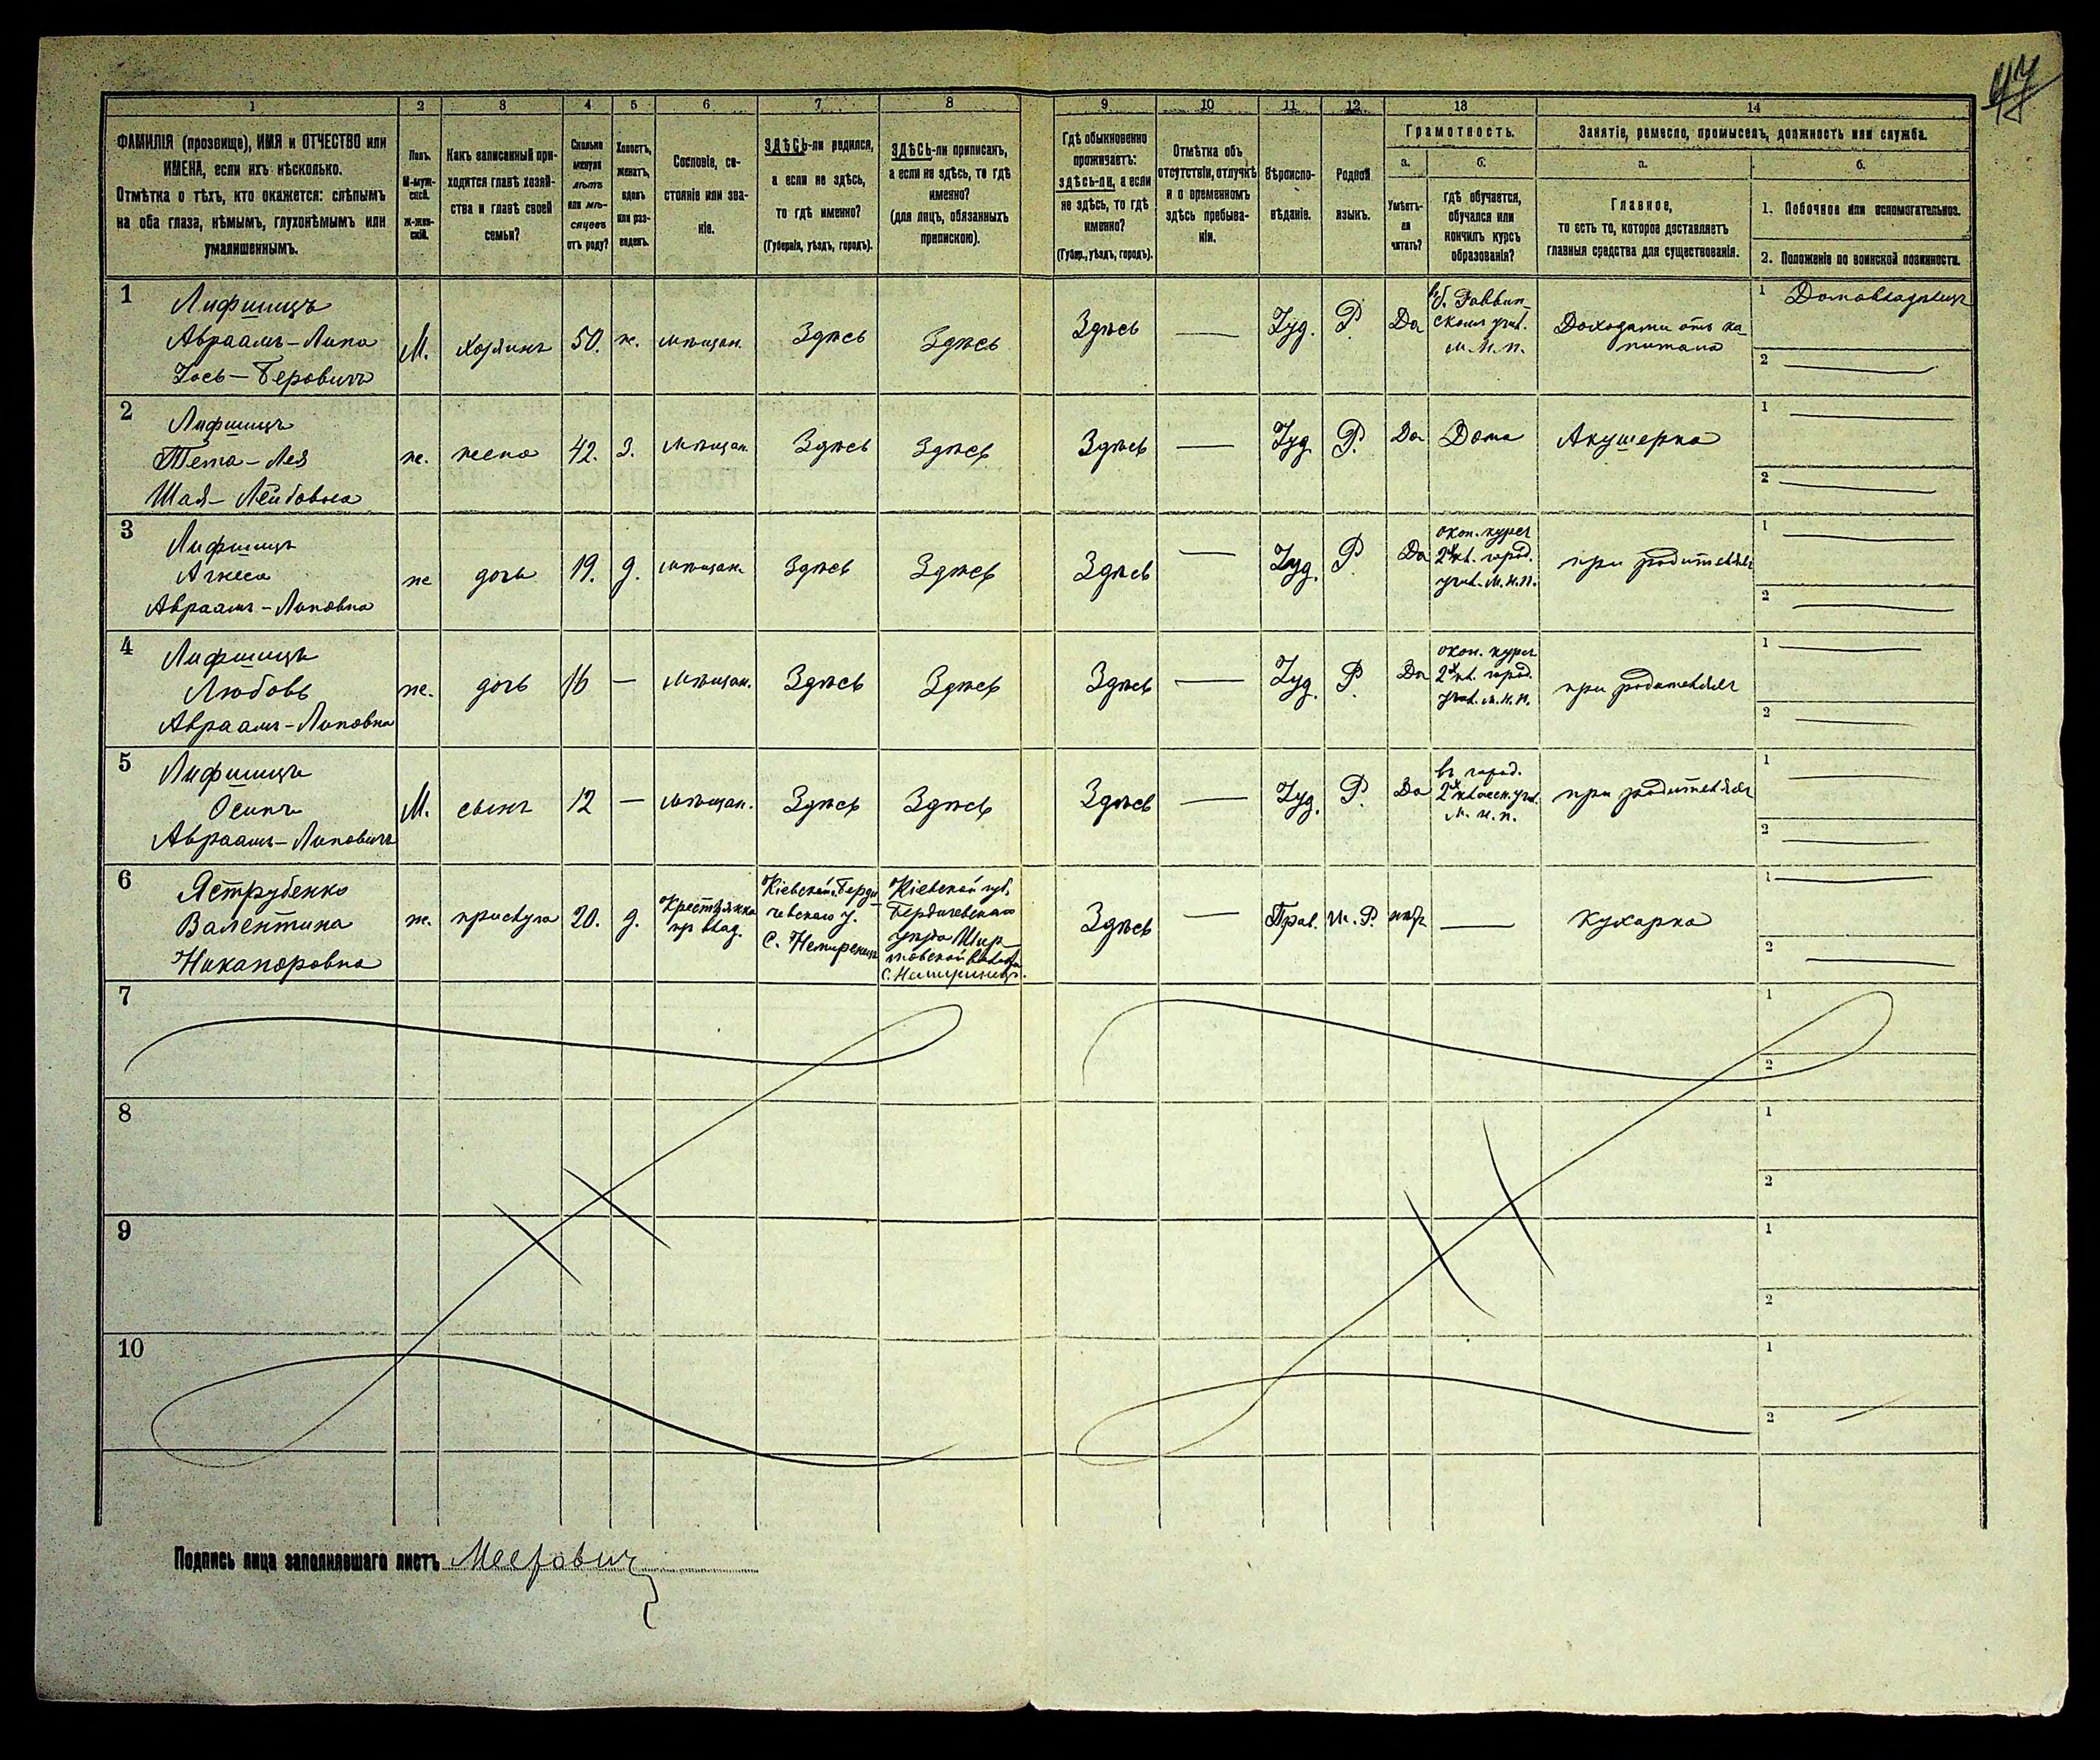 47
1 2 3 4 5 6 7 8 9 10 11 12 13 14
ФАМИЛІЯ (прозвище), ИМЯ и ОТЧЕСТВО или
ИМЕНА, если ихъ нѣсколько.
Отмѣтка о тѣхъ, кто окажется: слѣпымъ
на оба глаза, нѣмымъ, глухонѣмымъ или
умалишеннымъ.
Полъ.
М-муж-
ской.
Ж-жен-
скій.
Какъ записанный при-
ходится главѣ хозяй-
ства и главѣ своей
семьи?
Сколько
минуло
лѣтъ
или мѣ-
сяцевъ
отъ роду?
Холостъ,
женатъ,
вдовъ
или раз-
веденъ.
Сословіе, со-
стояніе или зва-
ніе.
ЗДѢСЬ-ли родился,
а если не здѣсь,
то гдѣ именно?
(Губернія, уѣздъ, городъ).
ЗДѢСЬ-ли приписанъ,
а если не здѣсь, то гдѣ
именно?
(для лицъ, обязанныхъ
припискою).
Гдѣ обыкновенно
проживаетъ:
здѣсь-ли, а если
не здѣсь, то гдѣ
именно?
(Губер., уѣздъ, городъ).
Отмѣтка объ
отсутствіи, отлучкѣ
и о временномъ
здѣсь пребыва-
ніи.
Вѣроиспо-
вѣданіе.
Родной
языкъ.
Грамотность.
а.
Умѣетъ-
ли
читать?
б.
гдѣ обучается,
обучался или
кончилъ курсъ
образованія?
Занятіе, ремесло, промыселъ, должность или служба.
а.
Главное,
то есть то, которое доставляетъ
главныя средства для существованія.
б.
1. Побочное или вспомогательное.
2. Положеніе по воинской повинности.
1
Лифшицъ
Авраамъ-Липа
Іось-Беровичъ
М.
хозяинъ
50.
ж.
мѣщан.
Здѣсь
Здѣсь
Здѣсь
—
Іуд.
Р.
Да
въ б. Раввин-
скомъ учил.
м.н.п.
Доходами отъ ка-
питала
1 Домовладѣлецъ
2
2
Лифшицъ
Тема-Лея
Шая-Лейбовна
ж.
жена
42.
З.
мѣщан.
Здѣсь
Здѣсь
Здѣсь
—
Іуд.
Р.
Да
Дома
Акушерка
1
2
3
Лифшицъ
Агнеса
Авраамъ-Липовна
ж
дочь
19.
д.
мѣщан.
Здѣсь
Здѣсь
Здѣсь
—
Іуд.
Р.
Да
окон. курсъ
2хкл. город.
учил. м.н.п.
при родителяхъ
1
2
4
Лифшицъ
Любовь
Авраамъ-Липовна
ж.
дочь
16
—
мѣщан.
Здѣсь
Здѣсь
Здѣсь
—
Іуд.
Р.
Да
окон. курсъ
2хкл. город.
учил. м.н.п.
при родителяхъ
1
2
5
Лифшицъ
Осипъ
Авраамъ-Липовичъ
М.
сынъ
12
—
мѣщан.
Здѣсь
Здѣсь
Здѣсь
—
Іуд.
Р.
Да
въ город.
2хклассн. учил.
м.н.п.
при родителяхъ
1
2
6
Яструбенко
Валентина
Никаноровна
ж.
прислуга
20.
д.
Крестьянка
Кіевской г. Берди-
чевскаго у.
Кіевской губ.
Бердичевскаго
уѣзда
Здѣсь
—
Прав.
М.Р.
нѣтъ
—
Кухарка
1
2
7
1
2
8
1
2
9
1
2
10
1
2
Подпись лица заполнявшаго листъ Мееровичъ